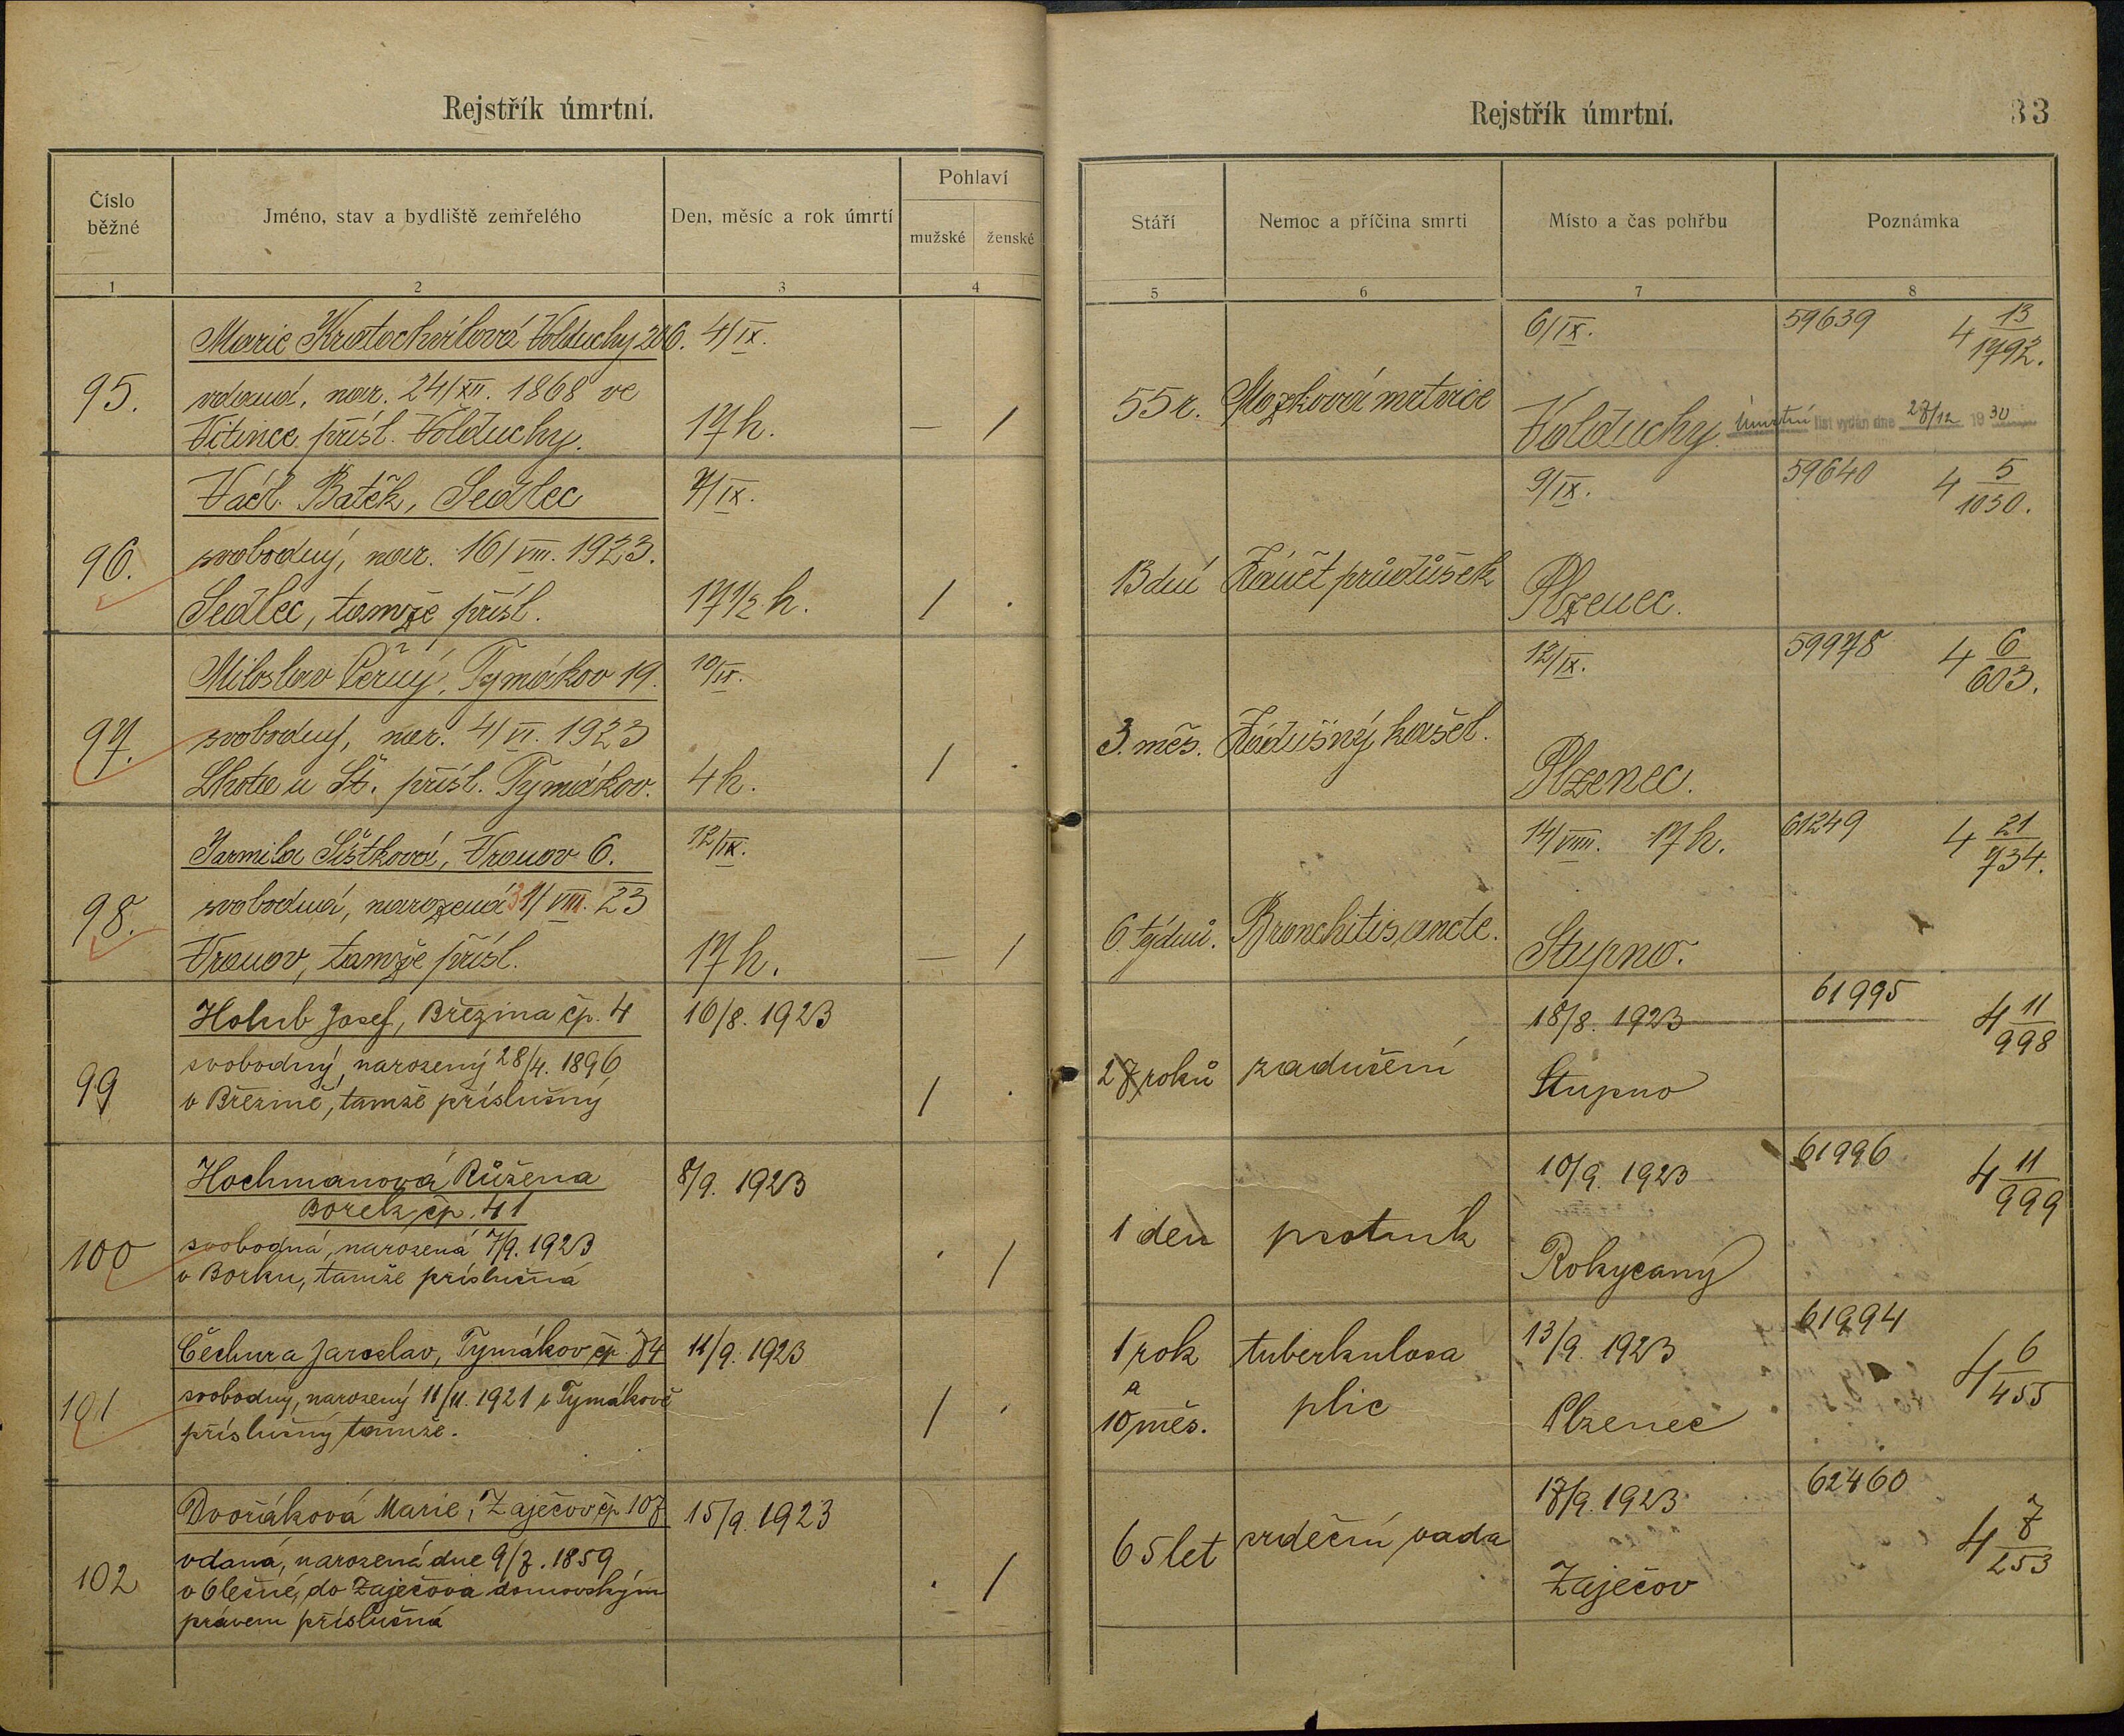 Rejstřík úmrtní.
Číslo běžné
Jméno, stav a bydliště zemřelého
Den, měsíc a rok úmrtí
Pohlaví
mužské
ženské
1
2
3
4
95.
Marie Kratochvílová Volduchy 206. 4/IX.
vdaná, nar. 24/XII. 1868 ve
Vitince přísl. Volduchy. 17 h. — /
96.
Václ. Batěk, Sedlec 7/IX.
svobodný, nar. 16/VIII. 1923.
Sedlec, tamže přísl. 17 1/2 h. / .
97.
Miloslav Černý, Tymákov 19. 10/IX.
svobodný, nar. 4/VI. 1923
Lhota u Št. přísl. Tymákov. 4 h. / .
98.
Jarmila Šístková, Vranov 6. 12/IX.
svobodná, narozená 31/VIII. 23
Vranov, tamže přísl. 17 h. — /
99
Holub Josef, Březina čp. 4 16/8. 1923
svobodný, narozený 28/4. 1896
v Březině, tamže příslušný / .
100
Hochmanová Růžena 8/9. 1923
Borek čp. 41
svobodná, narozená 7/9. 1923
v Borku, tamže příslušná . /
101
Čechura Jaroslav, Tymákov čp. 84 11/9. 1923
svobodný, narozený 11/11. 1921 v Tymákově
příslušný tamže. / .
102
Dvořáková Marie, Zaječov čp 107 15/9. 1923
vdaná, narozená dne 9/7. 1859
v Olešné, do Zaječova domovským
právem příslušná . /
Rejstřík úmrtní.
33
Stáří
Nemoc a příčina smrti
Místo a čas pohřbu
Poznámka
5
6
7
8
6/IX. 59639 4 13/1792.
55 r. Mozková mrtvice
Volduchy. Úmrtní list vydán dne 27/12 1930
9/IX. 59640 4 5/1030.
13 dní Zánět průdušek Plzenec.
12/IX. 59978 4 6/603.
3. měs. Zádušný kašel. Plzenec.
14/VIII. 17 h. 61249 4 21/734.
6. týdnů. Bronchitis Stupno.
18/8. 1923 61995 4 11/998
27 roků zadušení Stupno
10/9. 1923 61996 4 11/999
1 den psotník Rokycany
1 rok a 10 měs. tuberkulosa plic 13/9. 1923 61994 4 6/455
Plzenec
17/9. 1923 62460 4 7/253
65 let srdeční vada
Zaječov